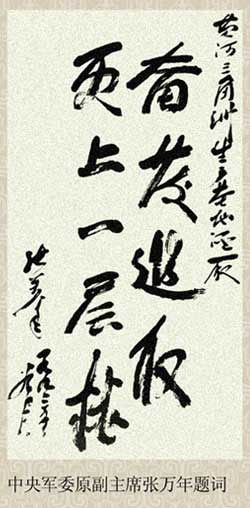 黄河三角洲生产基地酒厂
奋发进取
更上一层楼
张万年
中央军委原副主席张万年题词